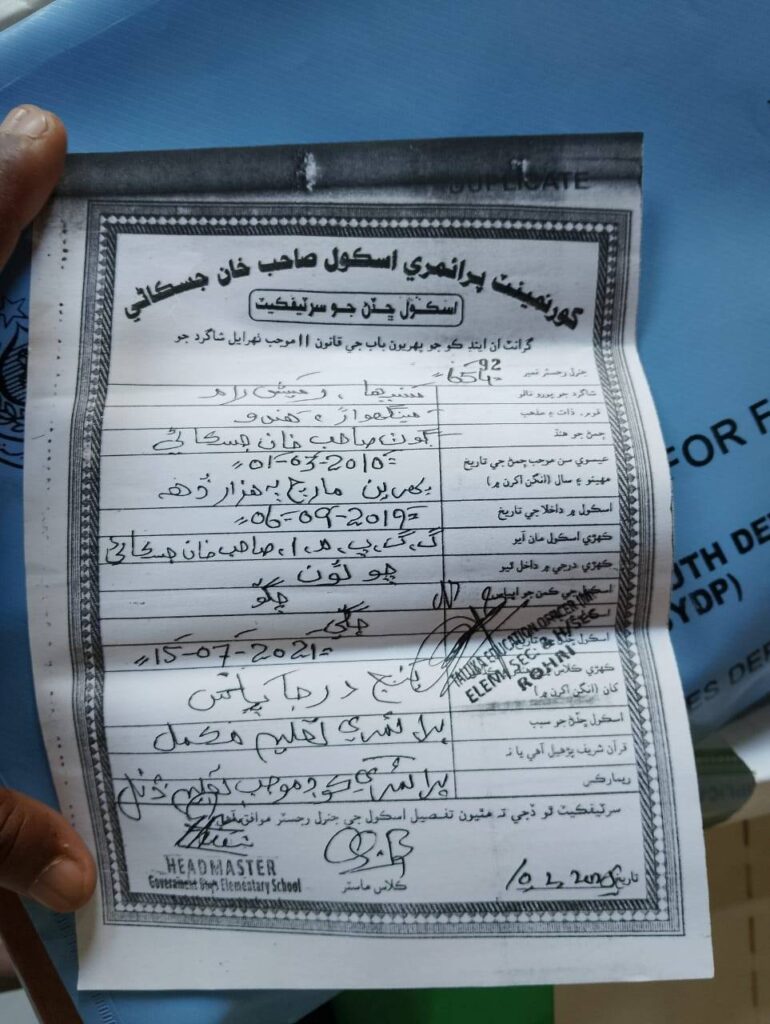 DUPLICATE
گورنمينٽ پرائمري اسڪول صاحب خان جسڪاڻي
اسڪول ڇڏڻ جو سرٽيفڪيٽ
گرانٽ ان ايڊ ڪو جو پهريون باب جي قانون 11 موجب ٺهرايل شاگرد جو
جنرل رجسٽر نمبر 654 92
شاگرد جو پورو نالو
قوم، ذات ۽ مذهب مينگهواڙ، هندو
ڄمڻ جو هنڌ ڳوٺ صاحب خان جسڪاڻي
عيسوي سن موجب ڄمڻ جي تاريخ =01-03-2010=
مهينو ۽ سال (انگن اکرن ۾) پهرين مارچ ٻه هزار ڏهه
اسڪول ۾ داخلا جي تاريخ =06-09-2019=
ڪهڙي اسڪول مان آيو صاحب خان جسڪاڻي
ڪهڙي درجي ۾ داخل ٿيو چوٿون
اسڪول جي ڪمن جو اڀياس چڱو
چڱي
اسڪول =15-07-2021=
ڪهڙي ڪلاس پنج درجا پاس
کان (انگن اکرن ۾)
اسڪول ڇڏڻ جو سبب پرائمري تعليم مڪمل
قرآن شريف پڙهيل آهي يا نہ
ريمارڪس پرائمري ڪورس موجب تعليم
سرٽيفڪيٽ ٿو ڏجي تہ مٿيون تفصيل اسڪول جي جنرل رجسٽر موافق آهي
TALUKA EDUCATION OFFICER (M)
ELEM: SEC: & H/SEC
ROHRI
HEADMASTER
Government Elementary School
ڪلاس ماستر
تاريخ
FOR F
UTH DE
YDP)
ES DEP